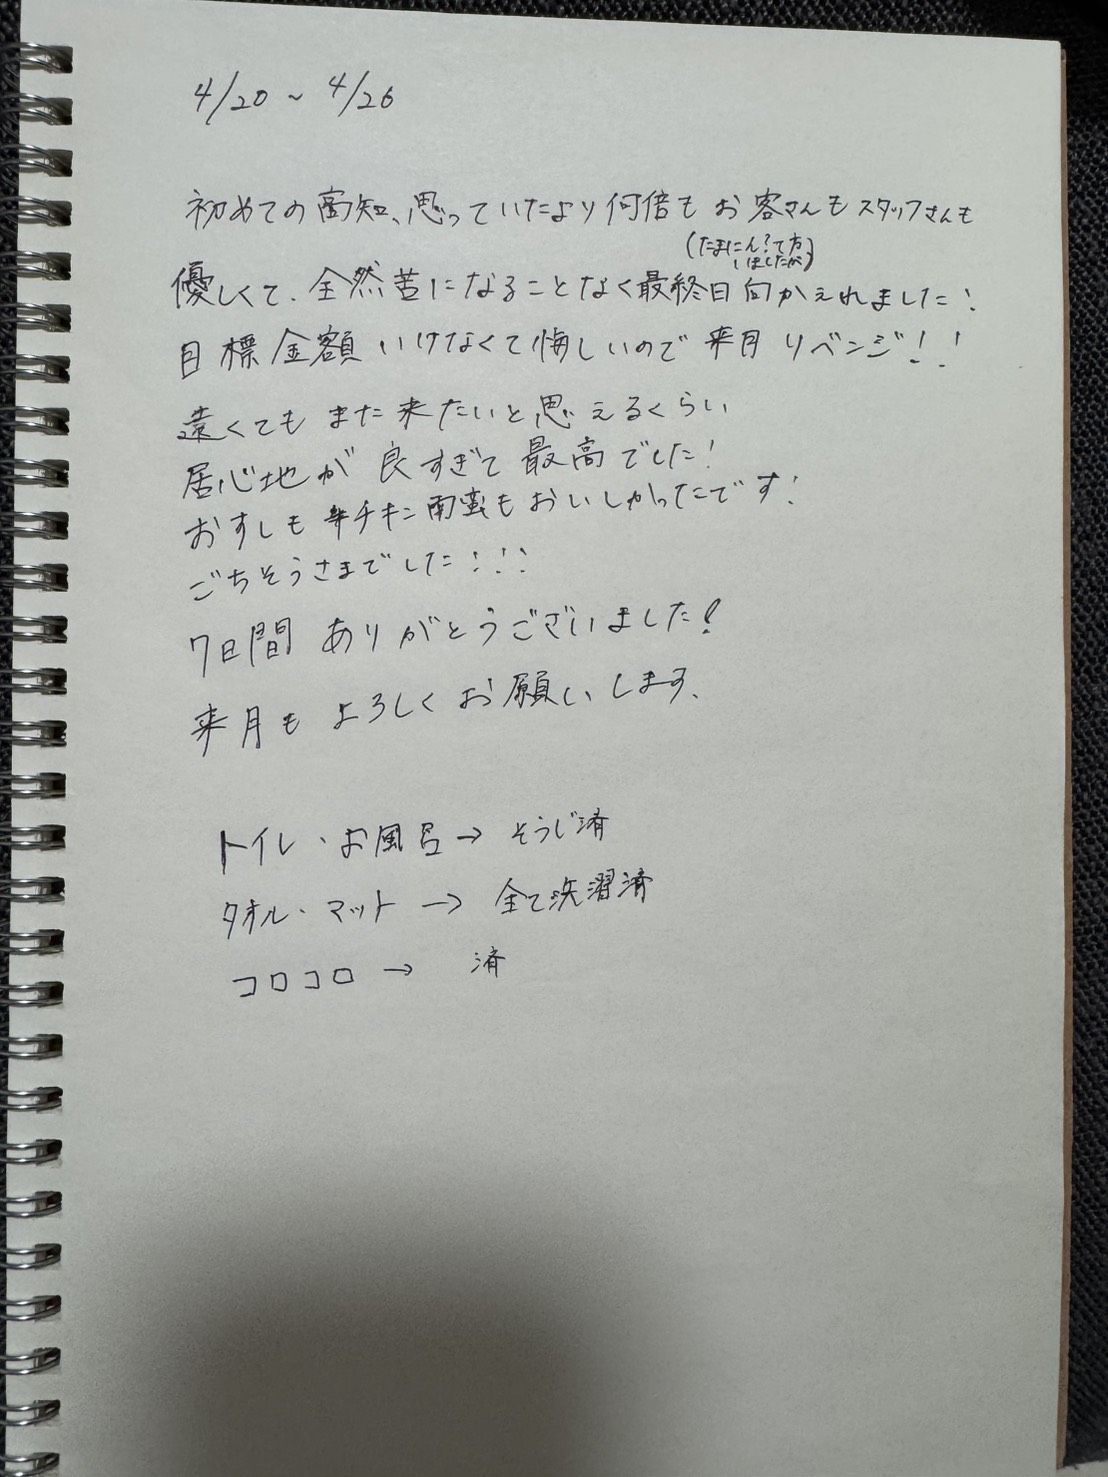 4/20 ~ 4/26
初めての高知、思っていたより何倍もお客さんもスタッフさんも
(たまにん?て方
いましたが)
優しくて、全然苦になることなく最終日向かえれました!
目標金額いけなくて悔しいので来月リベンジ!!
遠くてもまた来たいと思えるくらい
居心地が良すぎて最高でした!
おすしもチキン南蛮もおいしかったです!
ごちそうさまでした!!!
7日間ありがとうございました!
来月もよろしくお願いします。
トイレ・お風呂→そうじ済
タオル・マット→全て洗濯済
コロコロ→済